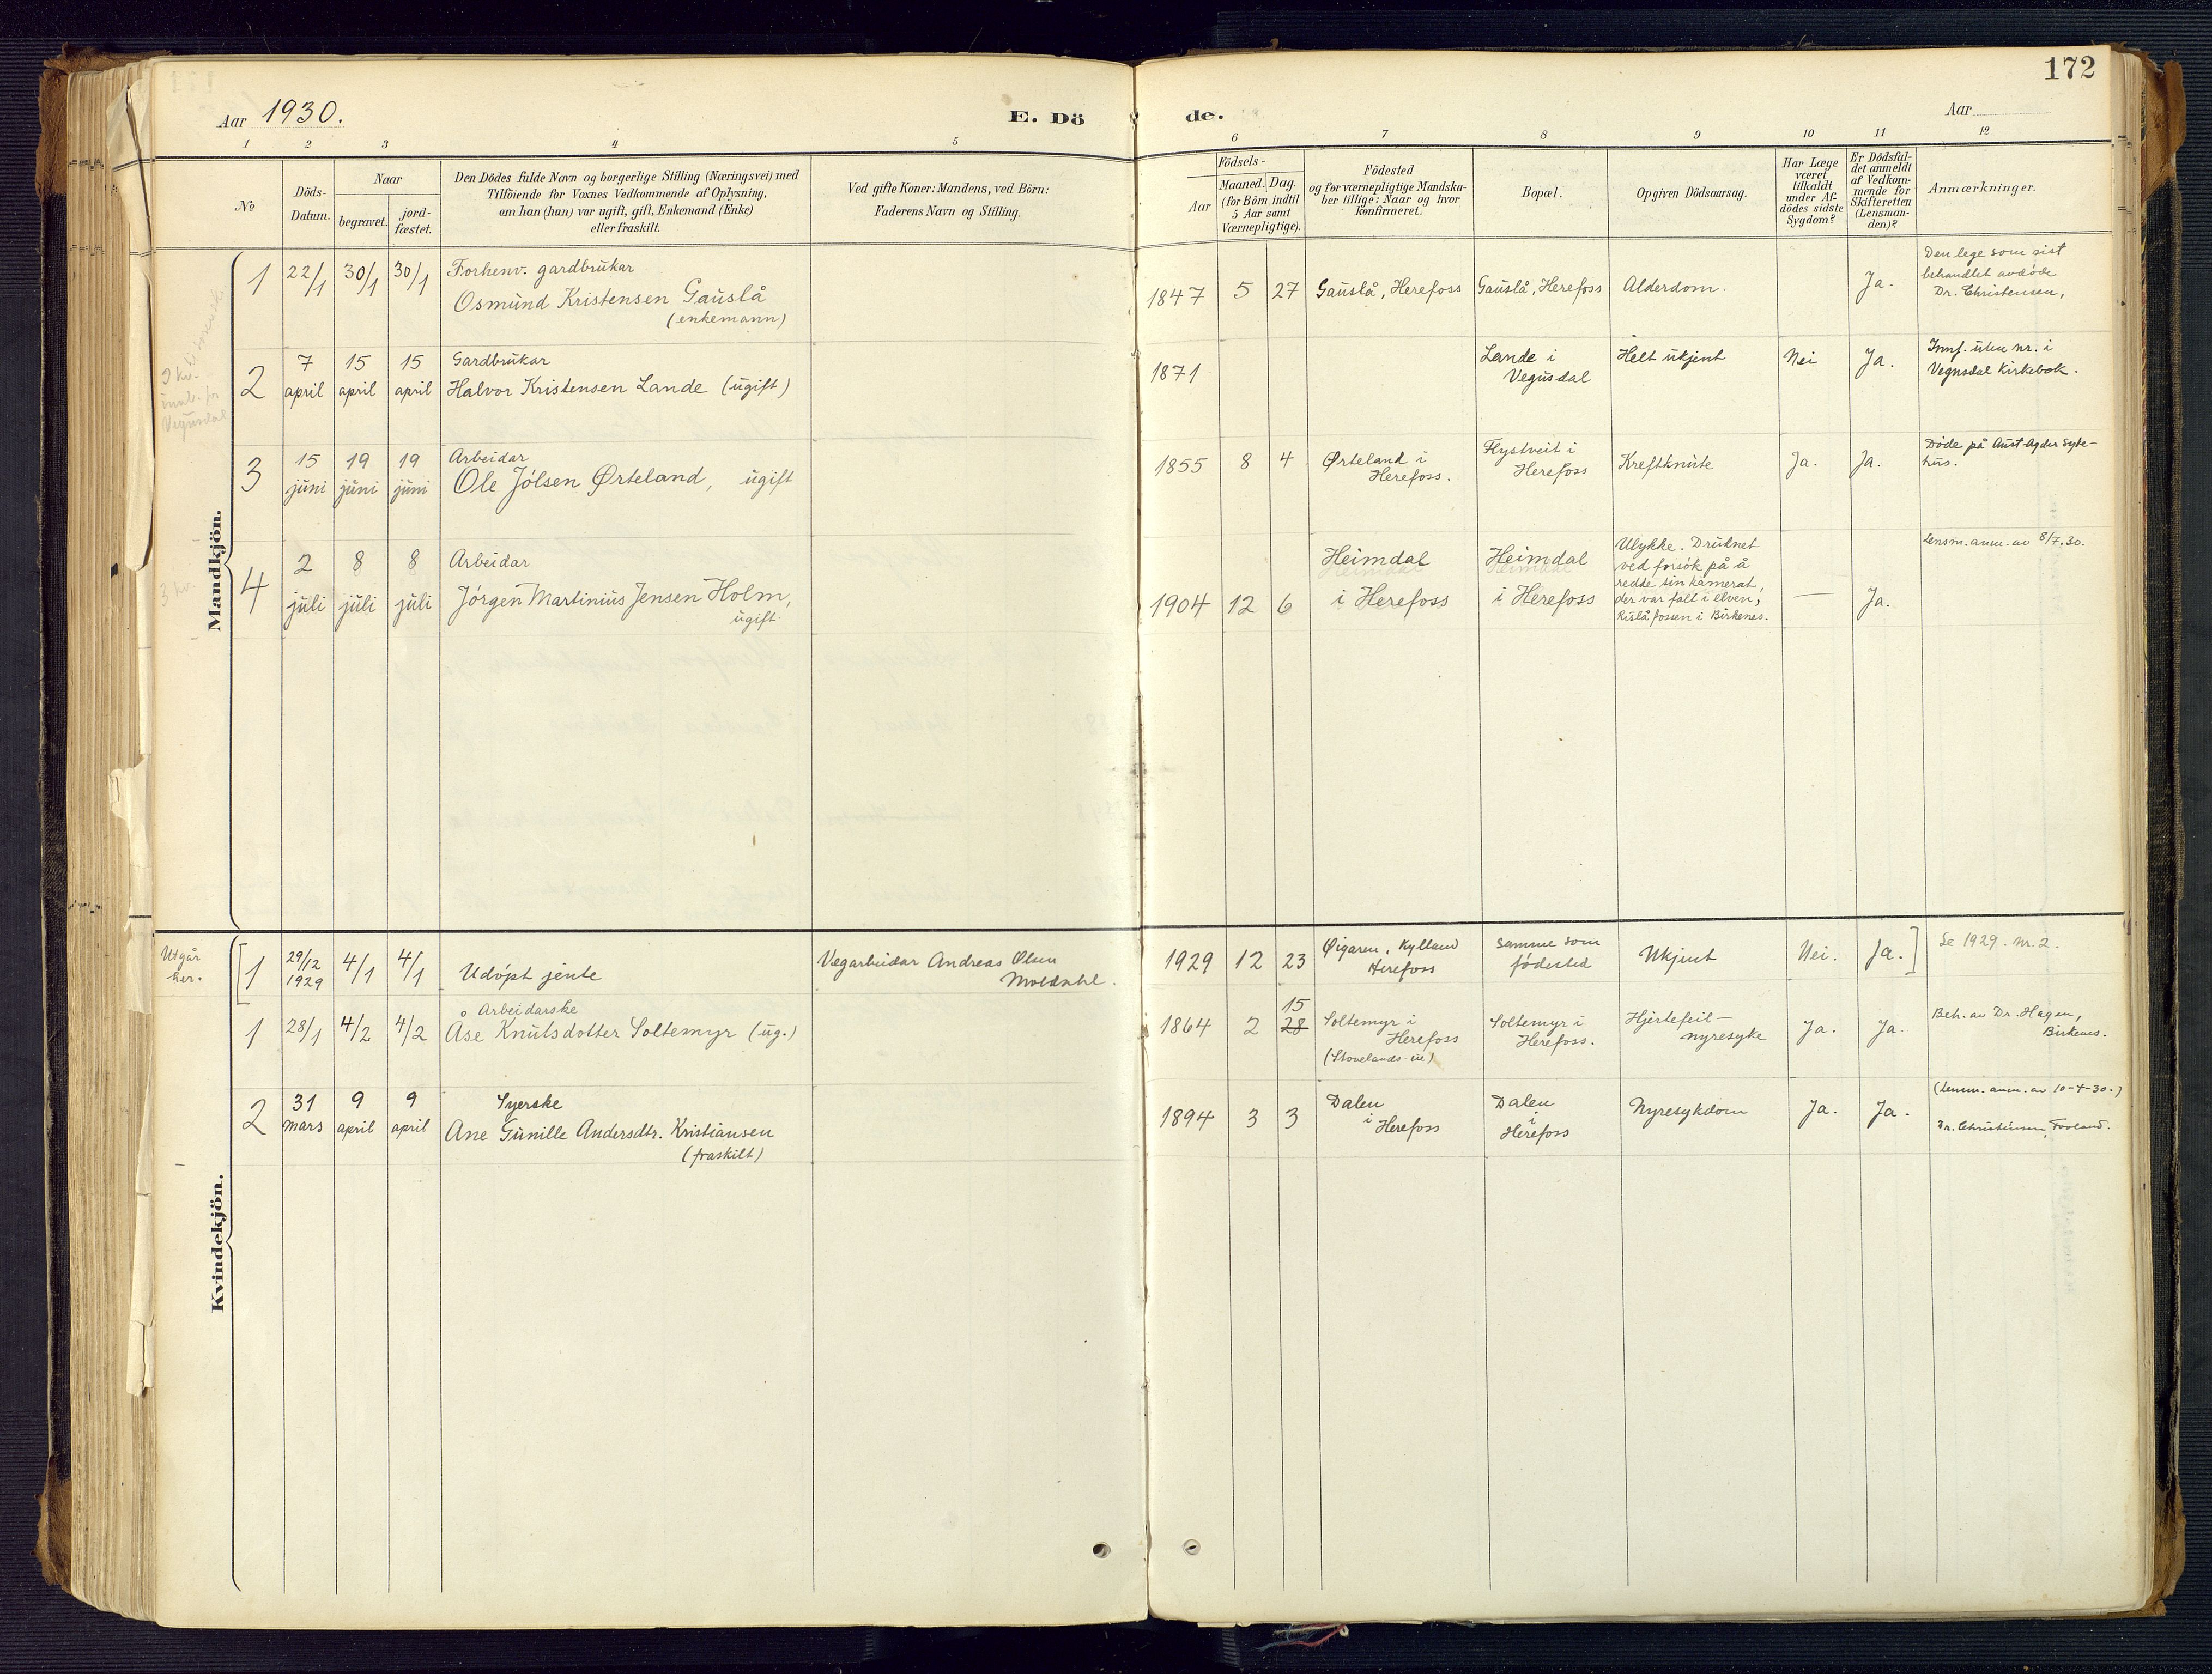 172
Aar 1930.
E. Dö de.
Aar
1 2 3 4 5 6 7 8 9 10 11 12
№
Döds-
Datum.
Naar
begravet.
jord-
fæstet.
Den Dödes fulde Navn og borgerlige Stilling (Næringsvei) med
Tilföiende for Voxnes Vedkommende af Oplysning,
om han (hun) var ugift, gift, Enkemand (Enke)
eller fraskilt.
Ved gifte Koner: Mandens, ved Börn:
Faderens Navn og Stilling.
Födsels-
Aar
Maaned. Dag.
(for Börn indtil
5 Aar samt
Værnepligtige).
Födested
og for værnepligtige Mandska-
ber tillige: Naar og hvor
konfirmeret.
Bopæl.
Opgiven Dödsaarsag.
Har Læge
været
tilkaldt
under Af-
dödes sidste
Sygdom?
Er Dödsfal-
det anmeldt
af Vedkom-
mende for
Skifteretten
(Lensman-
den)?
Anmærkninger.
Mandkjön.
1 22/1 30/1 30/1
Forhenv. gardbrukar
Osmund Kristensen Gauslå
(enkemann)
1847 5 27 Gauslå, Herefoss Gauslå, Herefoss Alderdom. Ja.
Den lege som sist
behandlet avdøde
Dr. Christensen,
Vegusdal
2 7 april 15 april 15 april
Gardbrukar
Halvor Kristensen Lande (ugift)
1871
Lande i
Vegusdal
Helt ukjent Nei Ja.
Innf. uten nr. i
Vegusdal Kirkebok.
3 15 juni 19 juni 19 juni
Arbeidar
Ole Jólsen Ørteland, ugift
1855 8 4
Ørteland i
Herefoss.
Flystveit i
Herefoss
Kreftknute Ja. Ja.
Døde på Aust-Agder syke-
hus.
3 kv.
4 2 juli 8 juli 8 juli
Arbeidar
Jörgen Martinius Jensen Holm,
ugift.
1904 12 6
Heimdal
i Herefoss
Heimdal
i Herefoss
Ulykke. Druknet
ved forsök på å
redde sin kamerat,
der var falt i elven,
Rislåfossen i Birkenes.
— Ja.
Lensm. anm. av 8/7.30.
Kvindekjön.
Utgår
her.
[1 29/12 1929 4/1 4/1
Udöpt jente
Vegarbeidar Andreas Olsen
Moldahl.
1929 12 23
Øigaren, Kylland
Herefoss
samme som
födested
Ukjent Nei. Ja.]
Se 1929. nr. 2.
1 28/1 4/2 4/2
Arbeidarske
Åse Knutsdotter Soltemyr (ug.)
1864 2 15 28
Soltemyr i
Herefoss
(Stovelands-ue)
Soltemyr i
Herefoss.
Hjertefeil—
nyresyke
Ja. Ja.
Beh. av Dr. Hagen,
Birkenes.
2 31 mars 9 april 9 april
Syerske
Ane Gunille Andersdtr. Kristiansen
(fraskilt)
1894 3 3
Dalen
i Herefoss
Dalen
i
Herefoss
Nyresykdom Ja. Ja.
(Lensm. anm. av 10-4-30.)
Dr. Christensen, Froland.